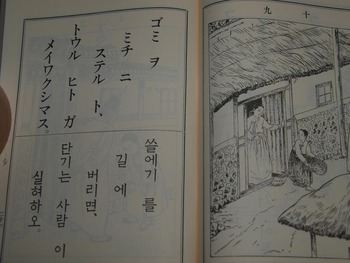 十九
ゴミ ヲ
ミチ ニ
ステル ト、
トウル ヒト ガ
メイワクシマス。
쓸에기 를
길 에
버리면,
단기는 사람 이
실허하오.